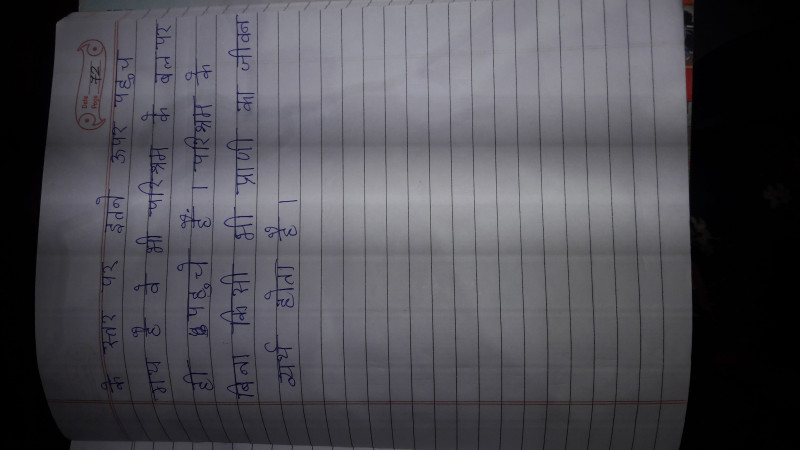 Date
Page 72
के स्तर पर इतने ऊपर पहुच
गये है वे भी परिश्रम के बल पर
ही पहुचे हैं । परिश्रम के
बिना किसी भी प्राणी का जीवन
व्यर्थ होता है ।